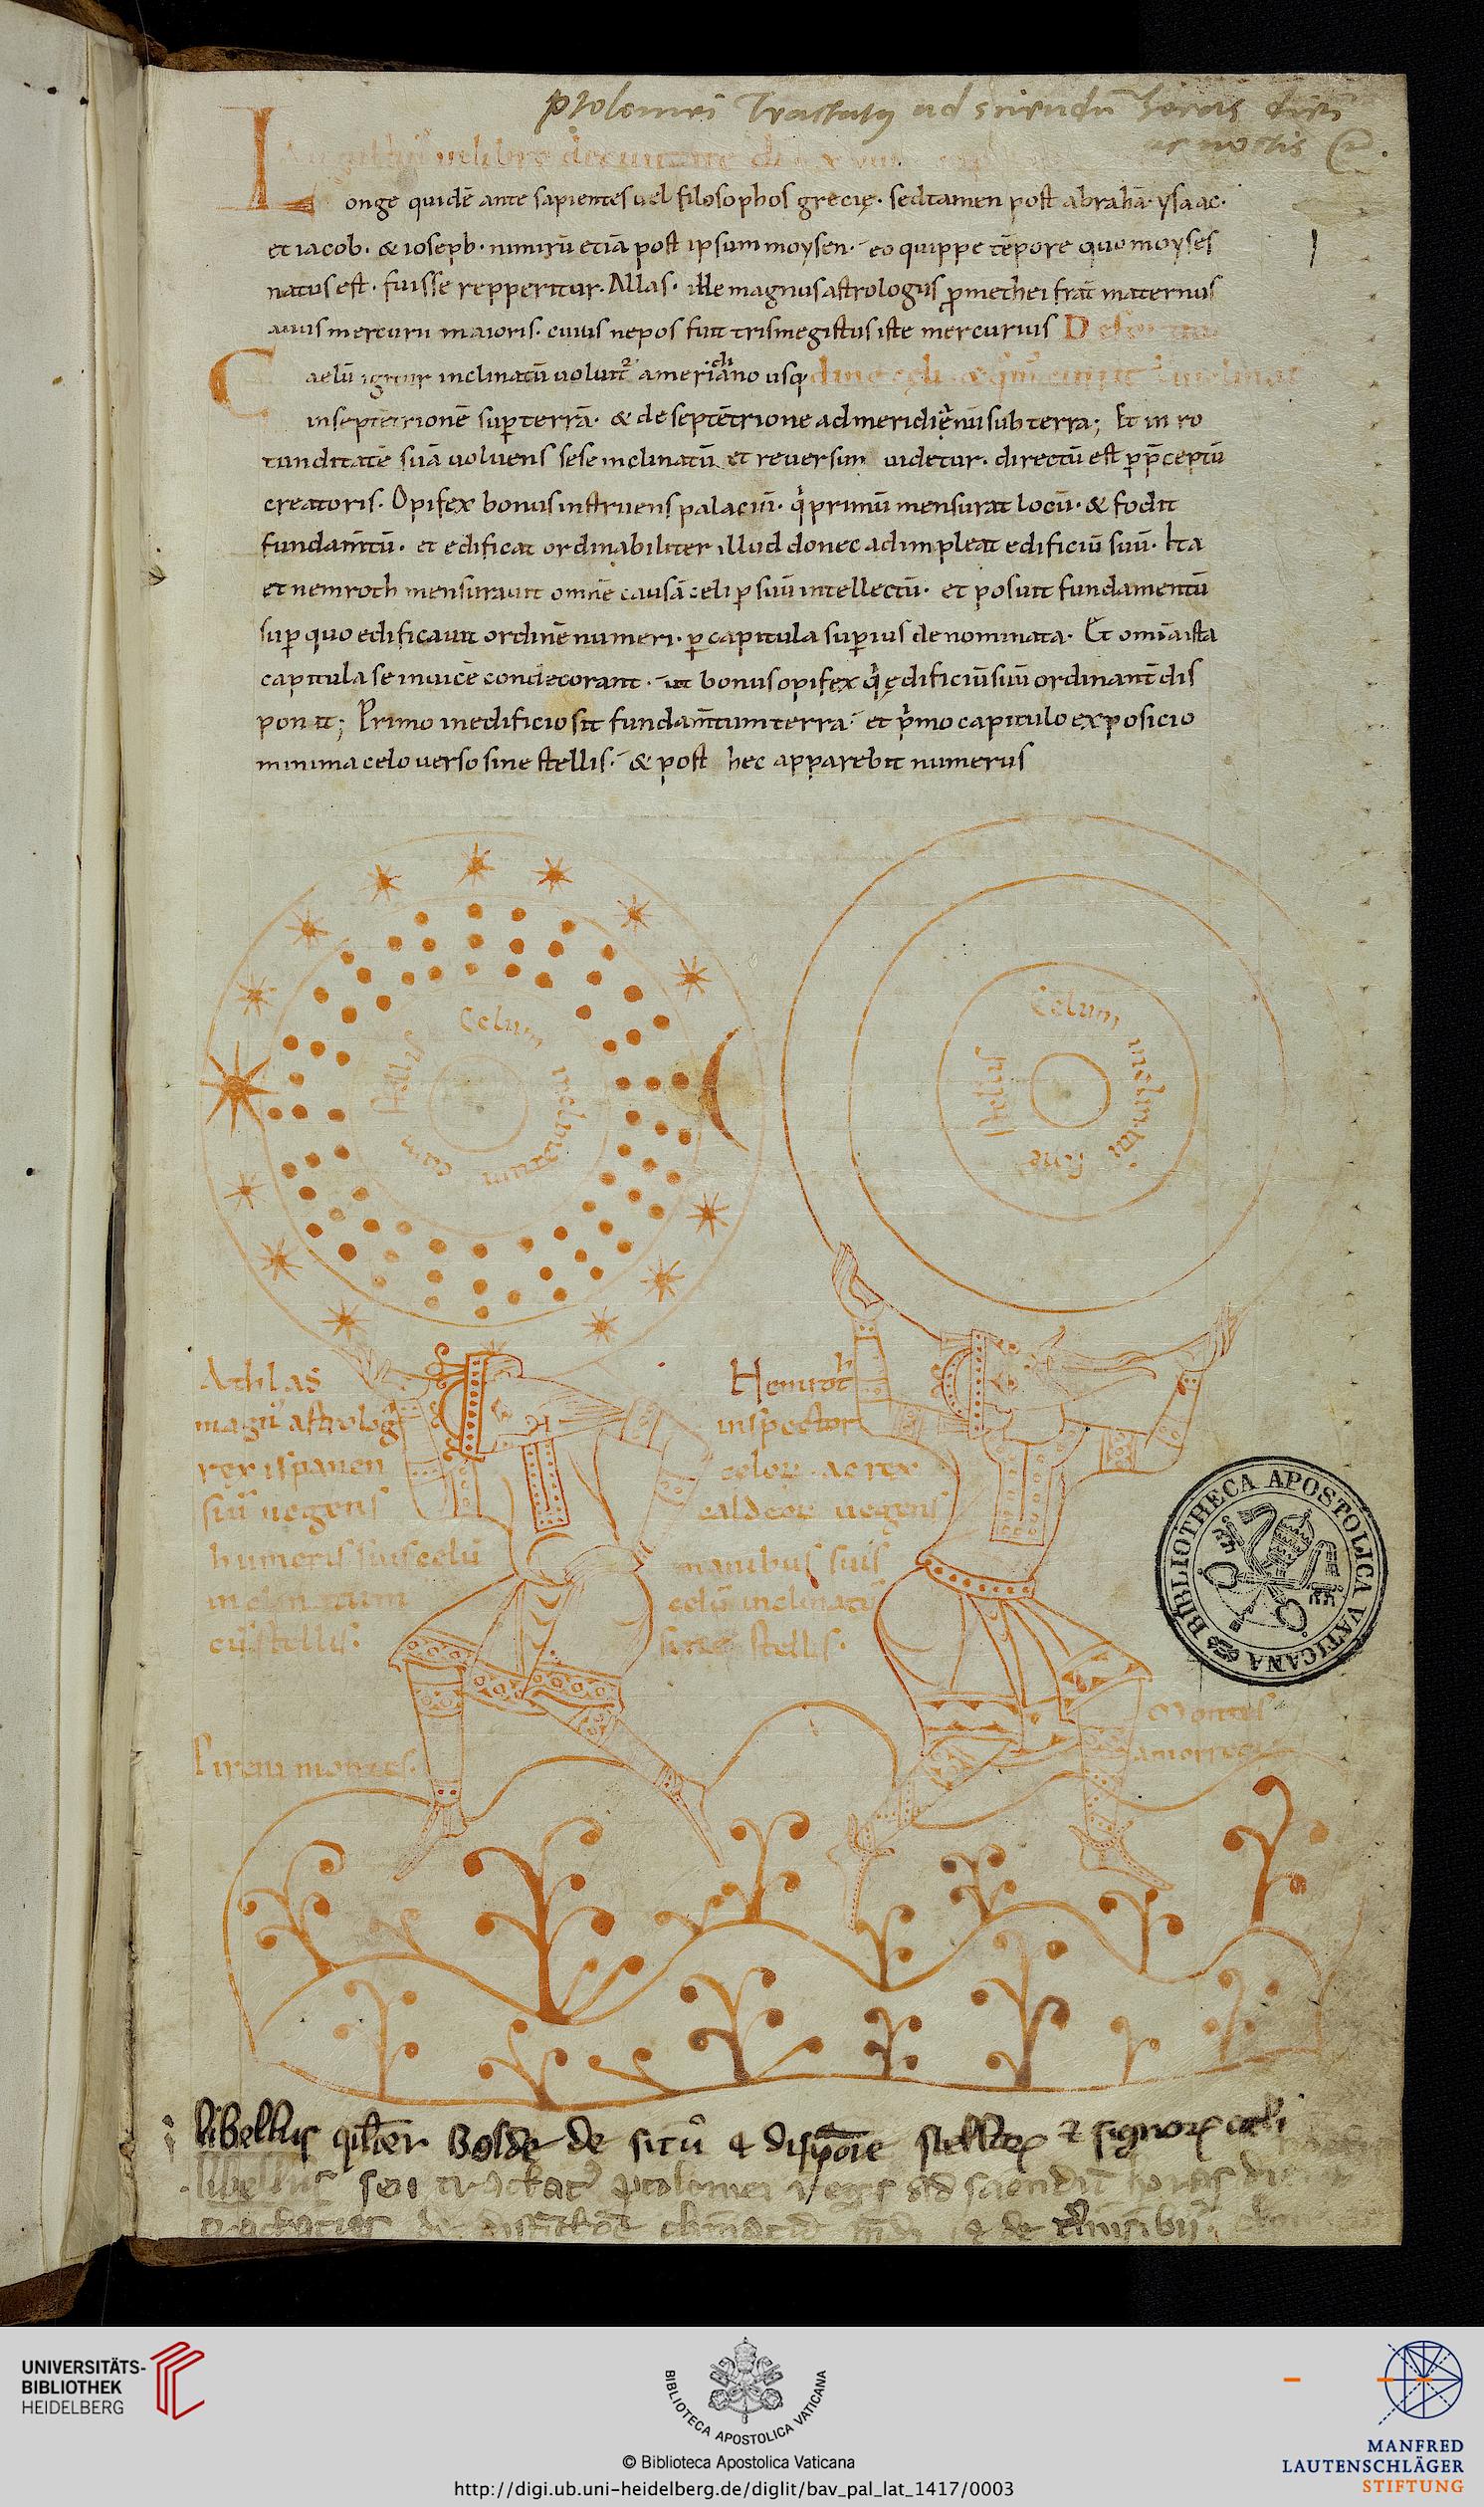 ptolomei Tractatus ad sciendū horas diei
ac noctis
Longe quidē ante sapientes vel filosophos grecię · sed tamen post abrahā · ysaac ·
et iacob · & ioseph · nimirū etiā post ipsum moysen · eo quippe tēpore quo moyses
natus est · fuisse repperitur · Atlas · ille magnus astrologus promethei frat̄ maternus
avus mercurii maioris · cuius nepos fuit trismegistus iste mercurius
Caelū igitur inclinatū volvit᷑ a meridiano usq;
in septētrionē sup̄ terrā · & de septētrione ad meridiēnū sub terra; Et in ro
tunditatē suā volvens sese inclinatū et reversim videtur · directū est p̄ p̄ceptū
creatoris · Opifex bonus instruens palaciū · q̇ primū mensurat locū · & fodit
fundam̄tū · et edificat ordinabiliter illud donec adimpleat edificiū suū · Ita
et nemroth mensuravit omnē causā celi p suū intellectū · et posuit fundamentū
sup quo edificavit ordinē numeri · p capitula superius denominata · Et om̄ia ista
capitula se invicē condecorant · ut bonus opifex q̇ ędificiū suū ordinant̄ dis
ponit; Primo in edificio sit fundam̄tum terra · et p̄mo capitulo exposicio
minima celo verso sine stellis · & post hec apparebit numerus
Celum inclinatum cum stellis
Celum inclinatū sine stellis
Athlas
magn᷒ astrolog᷒
rex ispanen
siū vegens
humeris suis celū
inclinatum
cū stellis ·
Hemroth
inspector
celoꝝ · ac rex
caldeoꝝ vegens
manibus suis
celū inclinatū
sine stellis ·
Pirenei montes ·
Montes
amorreoꝝ
BIBLIOTHECA APOSTOLICA VATICANA
libellus qualiter Bolde de situ & disp̄oīe stellaꝝ & signoꝝ celi
libellus seu tractat᷒ ptolomei regis ad sciendū horas diei
UNIVERSITÄTS-
BIBLIOTHEK
HEIDELBERG
BIBLIOTECA APOSTOLICA VATICANA
© Biblioteca Apostolica Vaticana
http://digi.ub.uni-heidelberg.de/diglit/bav_pal_lat_1417/0003
MANFRED
LAUTENSCHLÄGER
STIFTUNG